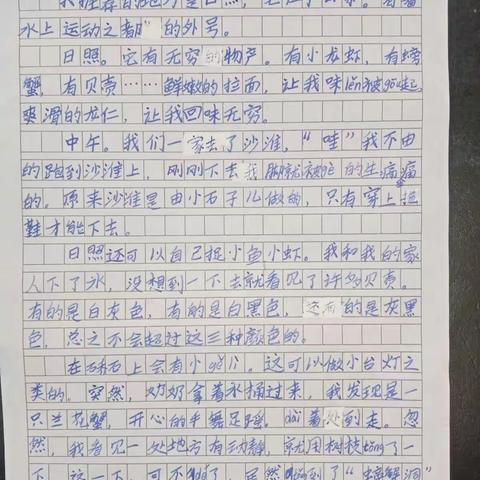 我推荐的地方是日照。它有着
水上运动之都的外号。
日照。它有无穷的物产。有小龙虾，有螃
蟹，有贝壳……鲜嫩的拉面，让我味lěi被gōu起，
爽滑的龙仁，让我回味无穷。
中午。我们一家去了沙滩，“哇”我不由
的跑到沙滩上，刚刚下去我脚就被的生痛痛
的。原来沙滩是由小石子儿做的，只有穿上拖
鞋才能下去。
日照还可以自己捉小鱼小虾。我和我的家
人下了水，没想到一下去就看见了许多贝壳。
有的是白灰色，有的是白黑色，还有的是灰黑
色，总之不会超过这三种颜色的。
在石上会有小gé lí。这可以做小台灯之
类的。突然，奶奶拿着水桶过来，我发现是一
只兰花蟹，开心的手舞足蹈。dài着处到走。忽
然，我看见一处地方有动静，就用树枝tǒng了一
下，这一下，可不得了，居然到了“螃蟹洞”